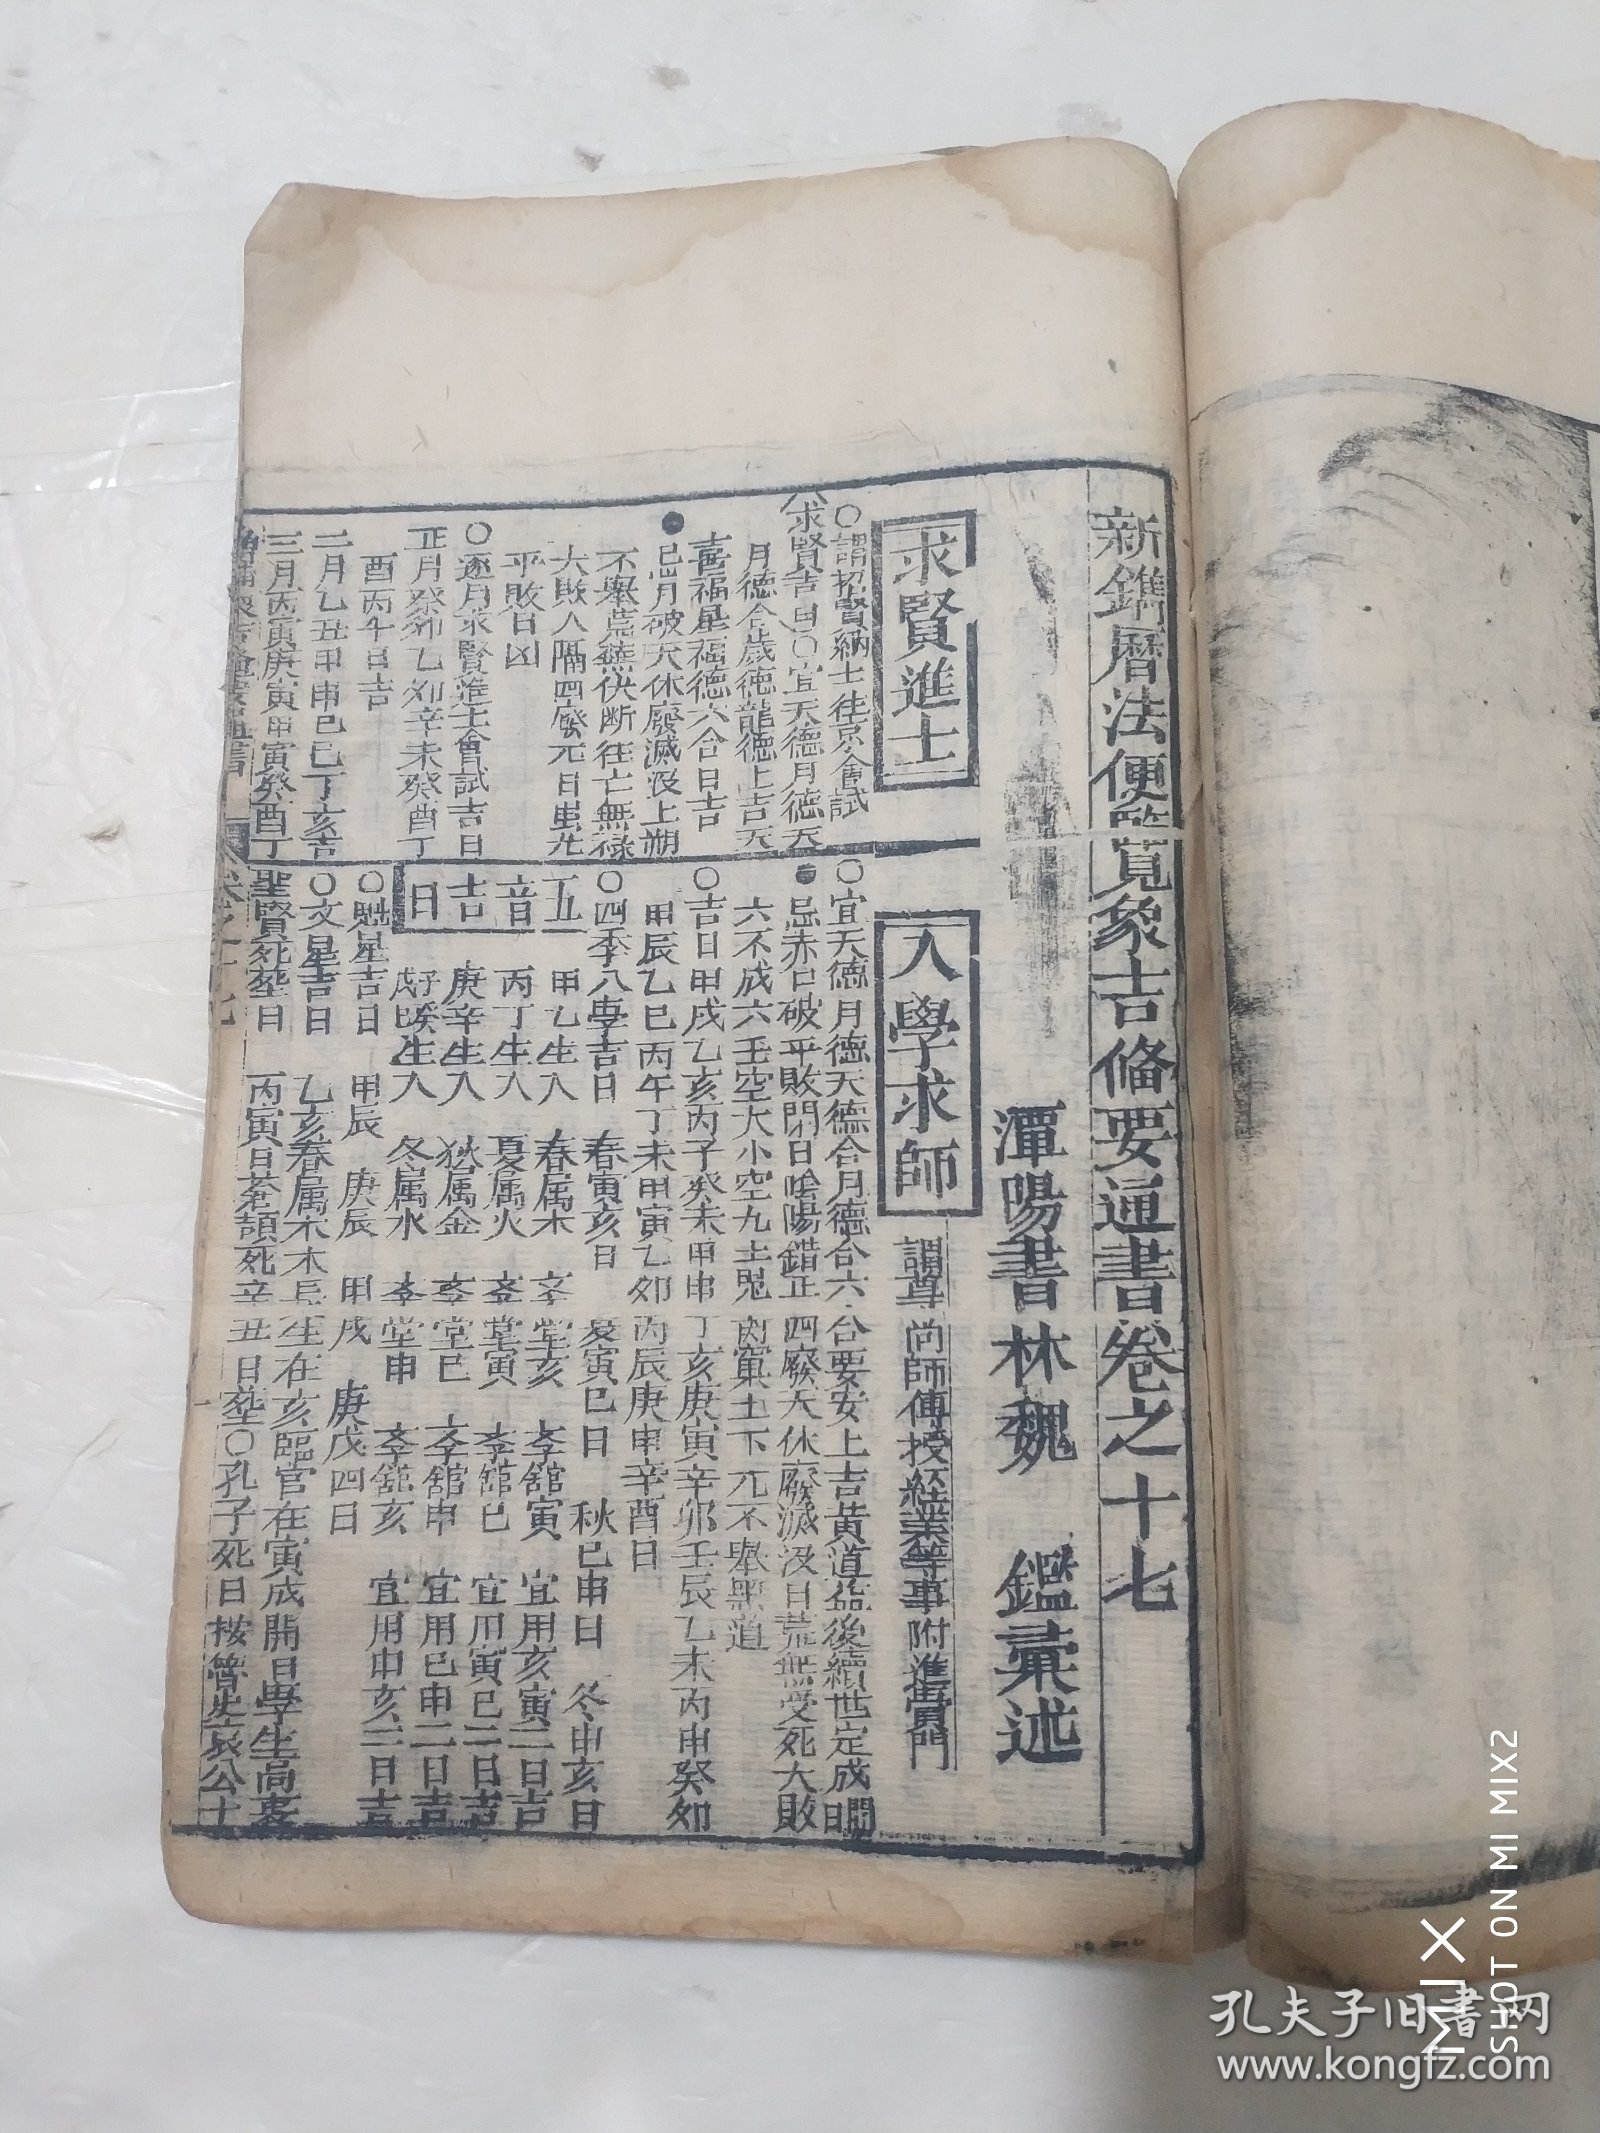 新鐫曆法便覽象吉備要通書卷之十七
潭陽書林魏　鑑彙述
求賢進士
○謂招賢納士往京會試
求賢吉日○宜天德月德天
月德合歲德龍德上吉天
喜福星福德六合日吉
●忌月破天休廢滅没上朔
不舉荒蕪伏断往亡無祿
大敗人隔四廢元日虽光
平敗日凶
○逐月求賢進士會試吉日
正月癸卯乙卯辛未癸酉丁
酉丙午日吉
二月乙丑甲申己巳丁亥吉
三月丙寅庚寅甲寅癸酉丁
入學求師
謂尊尚師傅授経業等事附進黌門
○宜天德月德天德合月德合六合要安上吉黃道益後續世定成開日
●忌赤口破平敗閉日陰陽錯正四廢天休廢滅没日荒無受死大敗
六不成六壬空大小空九土鬼
○吉日甲戌乙亥丙子癸未甲申丁亥庚寅辛卯壬辰乙未丙申癸卯
甲辰乙巳丙午丁未甲寅乙卯丙辰庚申辛酉日
○四季入學吉日　春寅亥日　夏寅巳日　秋巳申日　冬申亥日
五音吉日
甲乙生人　春属木　学堂亥　学舘寅　宜用亥寅二日吉
丙丁生人　夏属火　学堂寅　学舘巳　宜用寅巳二日吉
庚辛生人　秋属金　学堂巳　学舘申　宜用巳申二日吉
壬癸生人　冬属水　学堂申　学舘亥　宜用申亥二日吉
○魁星吉日　甲辰　庚辰　甲戌　庚戌四日
○文星吉日　乙亥春属木木長生在亥臨官在寅成開日學生高
聖賢死塟日　丙寅日蒼頡死辛丑日塟○孔子死日按魯史哀公十
卷之十七
孔夫子旧书网
www.kongfz.com
MIX
SHOT ON MI MIX2